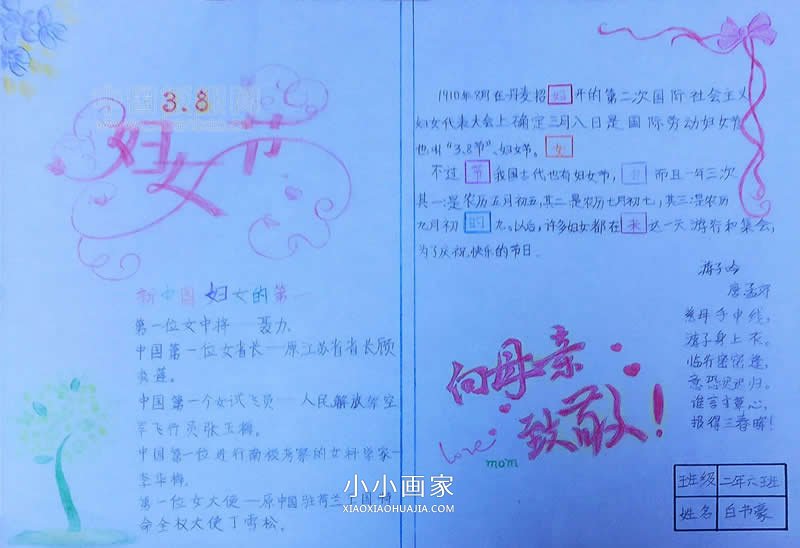 3.8
妇女节
新中国妇女的第一
第一位女中将——聂力.
中国第一位女省长——原江苏省省长顾
秀莲。
中国第一个女试飞员——人民解放军空
军飞行员张玉梅。
中国第一位进行南极考察的女科学家——
李华梅。
第一位女大使——原中国驻荷兰王国特
命全权大使丁雪松。
1910年8月在丹麦招 妇 开的第二次国际社会主义
妇女代表大会上确定三月八日是国际劳动妇女节
也叫“3.8节”、妇女节。 女
不过 节 我国古代也有妇女节, 而且一年三次
其一:是农历五月初五,其二:是农历七月初七,其三:是农历
九月初 的 九。以后,许多妇女都在 来 这一天游行和集会,
为了庆祝快乐的节日.
游子吟
唐孟郊
慈母手中线,
游子身上衣。
临行密密缝,
意恐迟迟归。
谁言寸草心,
报得三春晖!
向母亲
致敬!
Love
mom
班级 二年六班
姓名 白书豪
小小画家
XIAOXIAOHUAJIA.COM